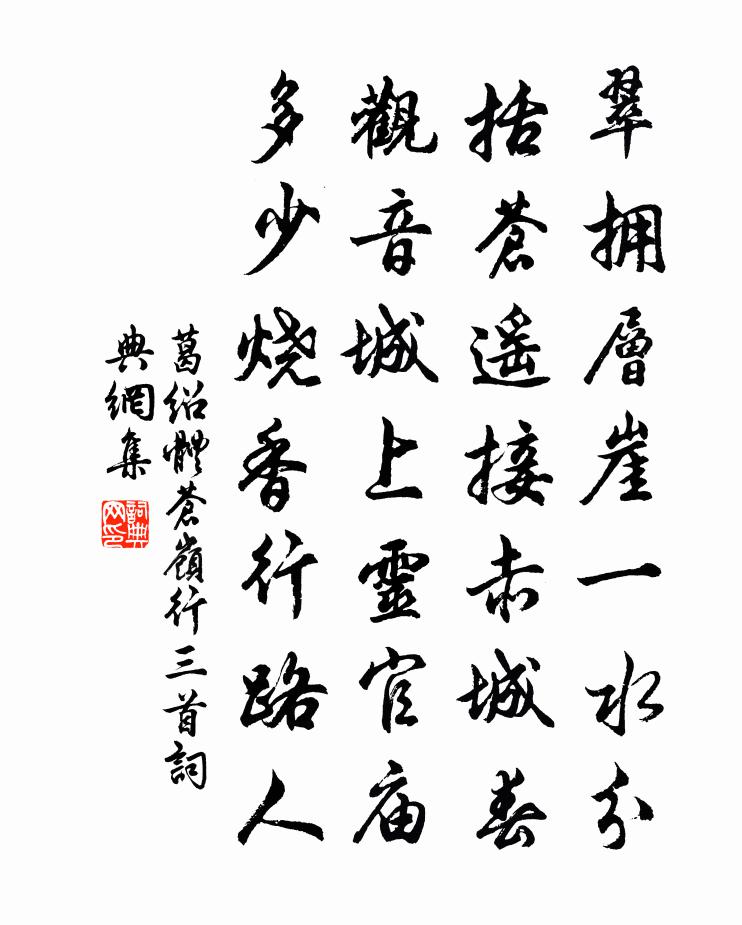 翠拥層崖一水分
括蒼遥接赤城春
觀音城上靈官庙
多少烧香行路人
葛绍體蒼嶺行三首詞
典網集
詞典网印